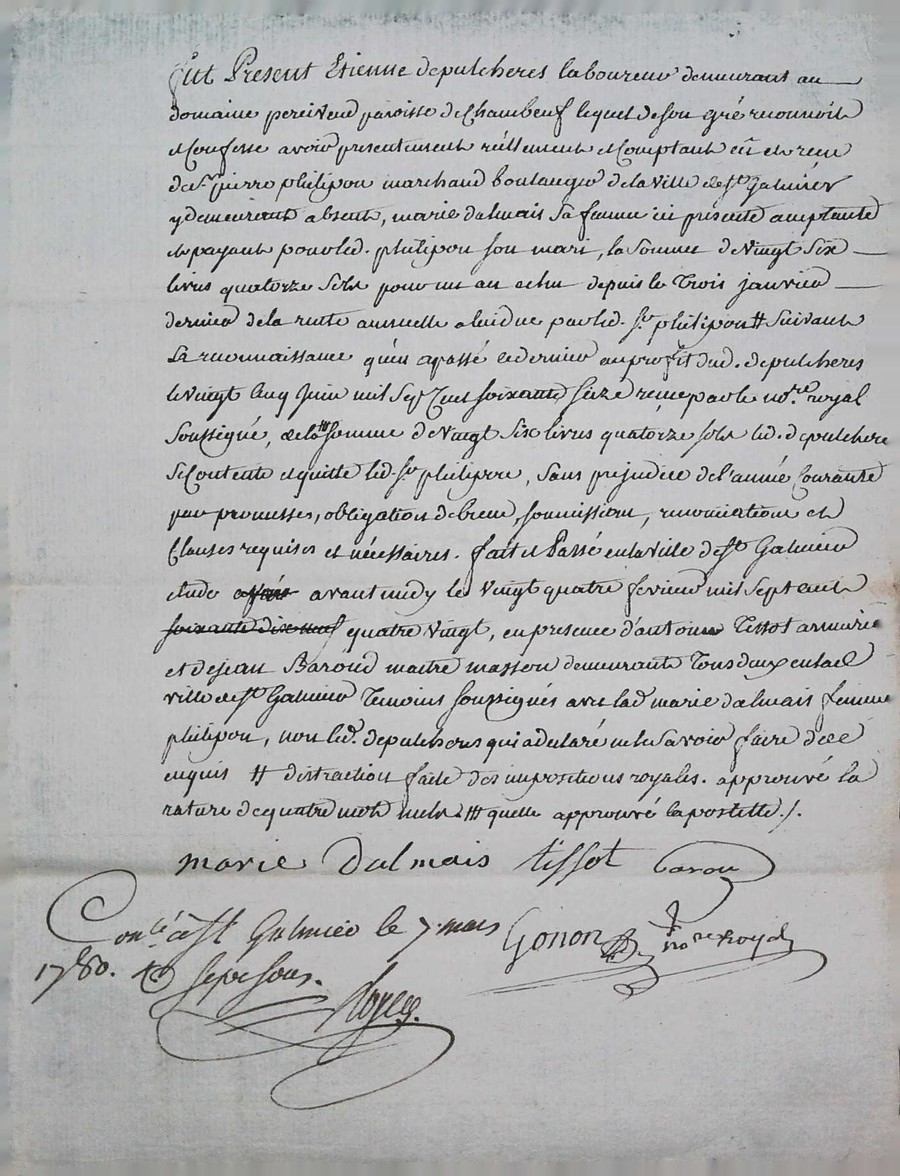 Fut Present Etienne depulcheres laboureur demeurant au
domaine pereivend paroisse de Chambeuf lequel de son gré reconnoit
et Confesse avoir presentement réellement et Comptant eû et receu
de sr. pierre philipon marchand boulanger de la ville de st. Galmier
y demeurant absent, marie dalmais sa femme ici présente acceptante
et payant pour led. philipon son mari, la somme de Vingt Six
livres quatorze Sols pour un an echu depuis le Trois janvier
dernier de la rente annuelle a lui due par led. sr. philipon # Suivant
la reconnaissance qu'en a passé ce dernier au profit dud. depulcheres
le vingt Cinq Juin mil Sept Cent soixante Seize reçue par le nore. royal
Soussigné, de la ## somme de Vingt Six livres quatorze sols led. depulchere
se Contente et quitte led. sr. philipon, Sans prejudice de l'année Courante
par promesses, obligation de biens, soumissions, renonciations et
Clauses requises et nécessaires. fait et Passé en la ville de st. Galmier
etude après avant midy le vingt quatre fevrier mil Sept cent
soixante dix neuf quatre vingt, en presence d'antoine Tissot armurier
et de jean Baroud maitre masson demeurants Tous deux en lad.
ville de st. Galmier Temoins soussignés avec lad. marie dalmais femme
philipon, non led. depulcheres qui a declaré ne le savoir faire de ce
enquis # distraction faite des impositions royales. approuvé la
rature de quatre mots nuls ## quelle approuvé l'apostille ./.
marie Dalmais tissot barou
Gonon nore Royal
Conlé. à st Galmier le 7. mars
1780. sept sous.